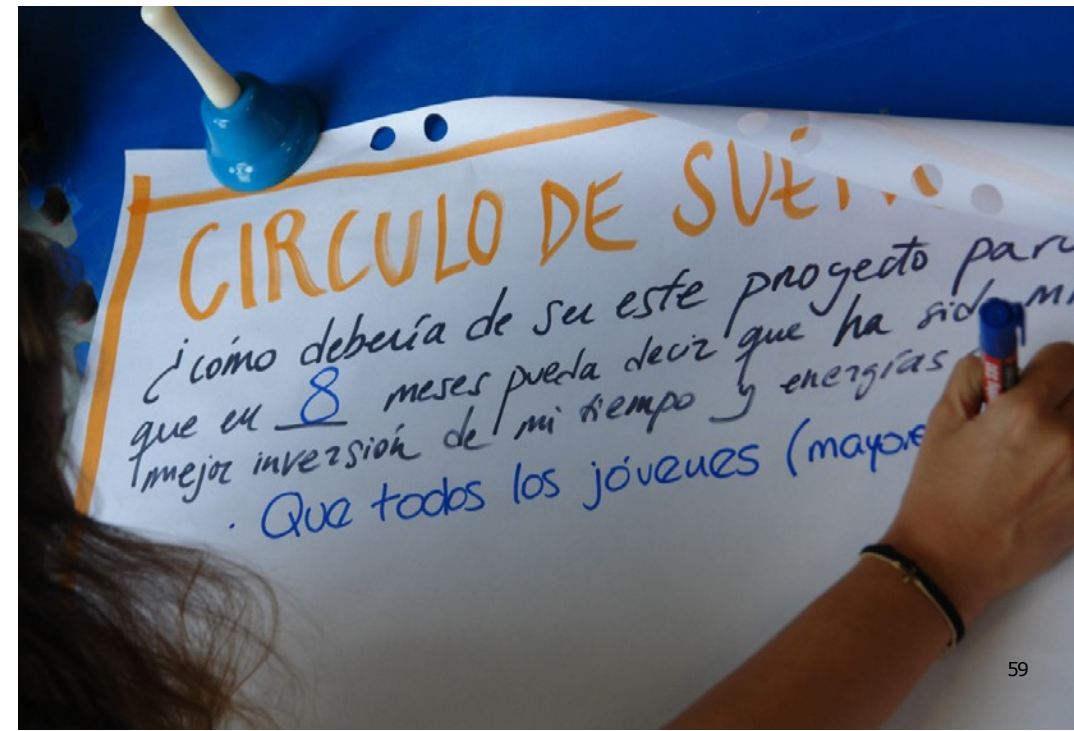 CIRCULO DE
¿cómo debería de ser este proyecto para
que en 8 meses pueda decir que ha sido mi
mejor inversión de mi tiempo y energías
. Que todos los jóvenes (mayore
59